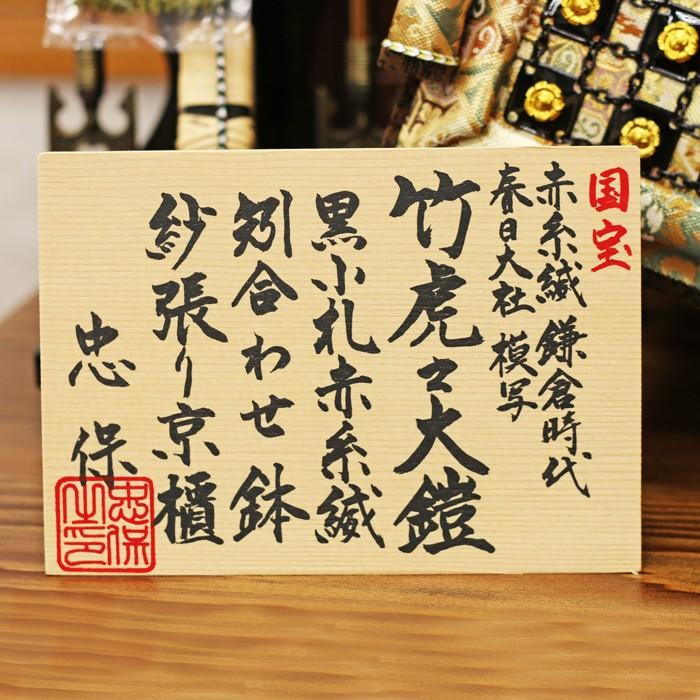 国宝
赤糸縅 鎌倉時代
春日大社 模写
竹虎之大鎧
黒小札赤糸縅
矧合わせ鉢
紗張り京櫃
忠保
忠保之印